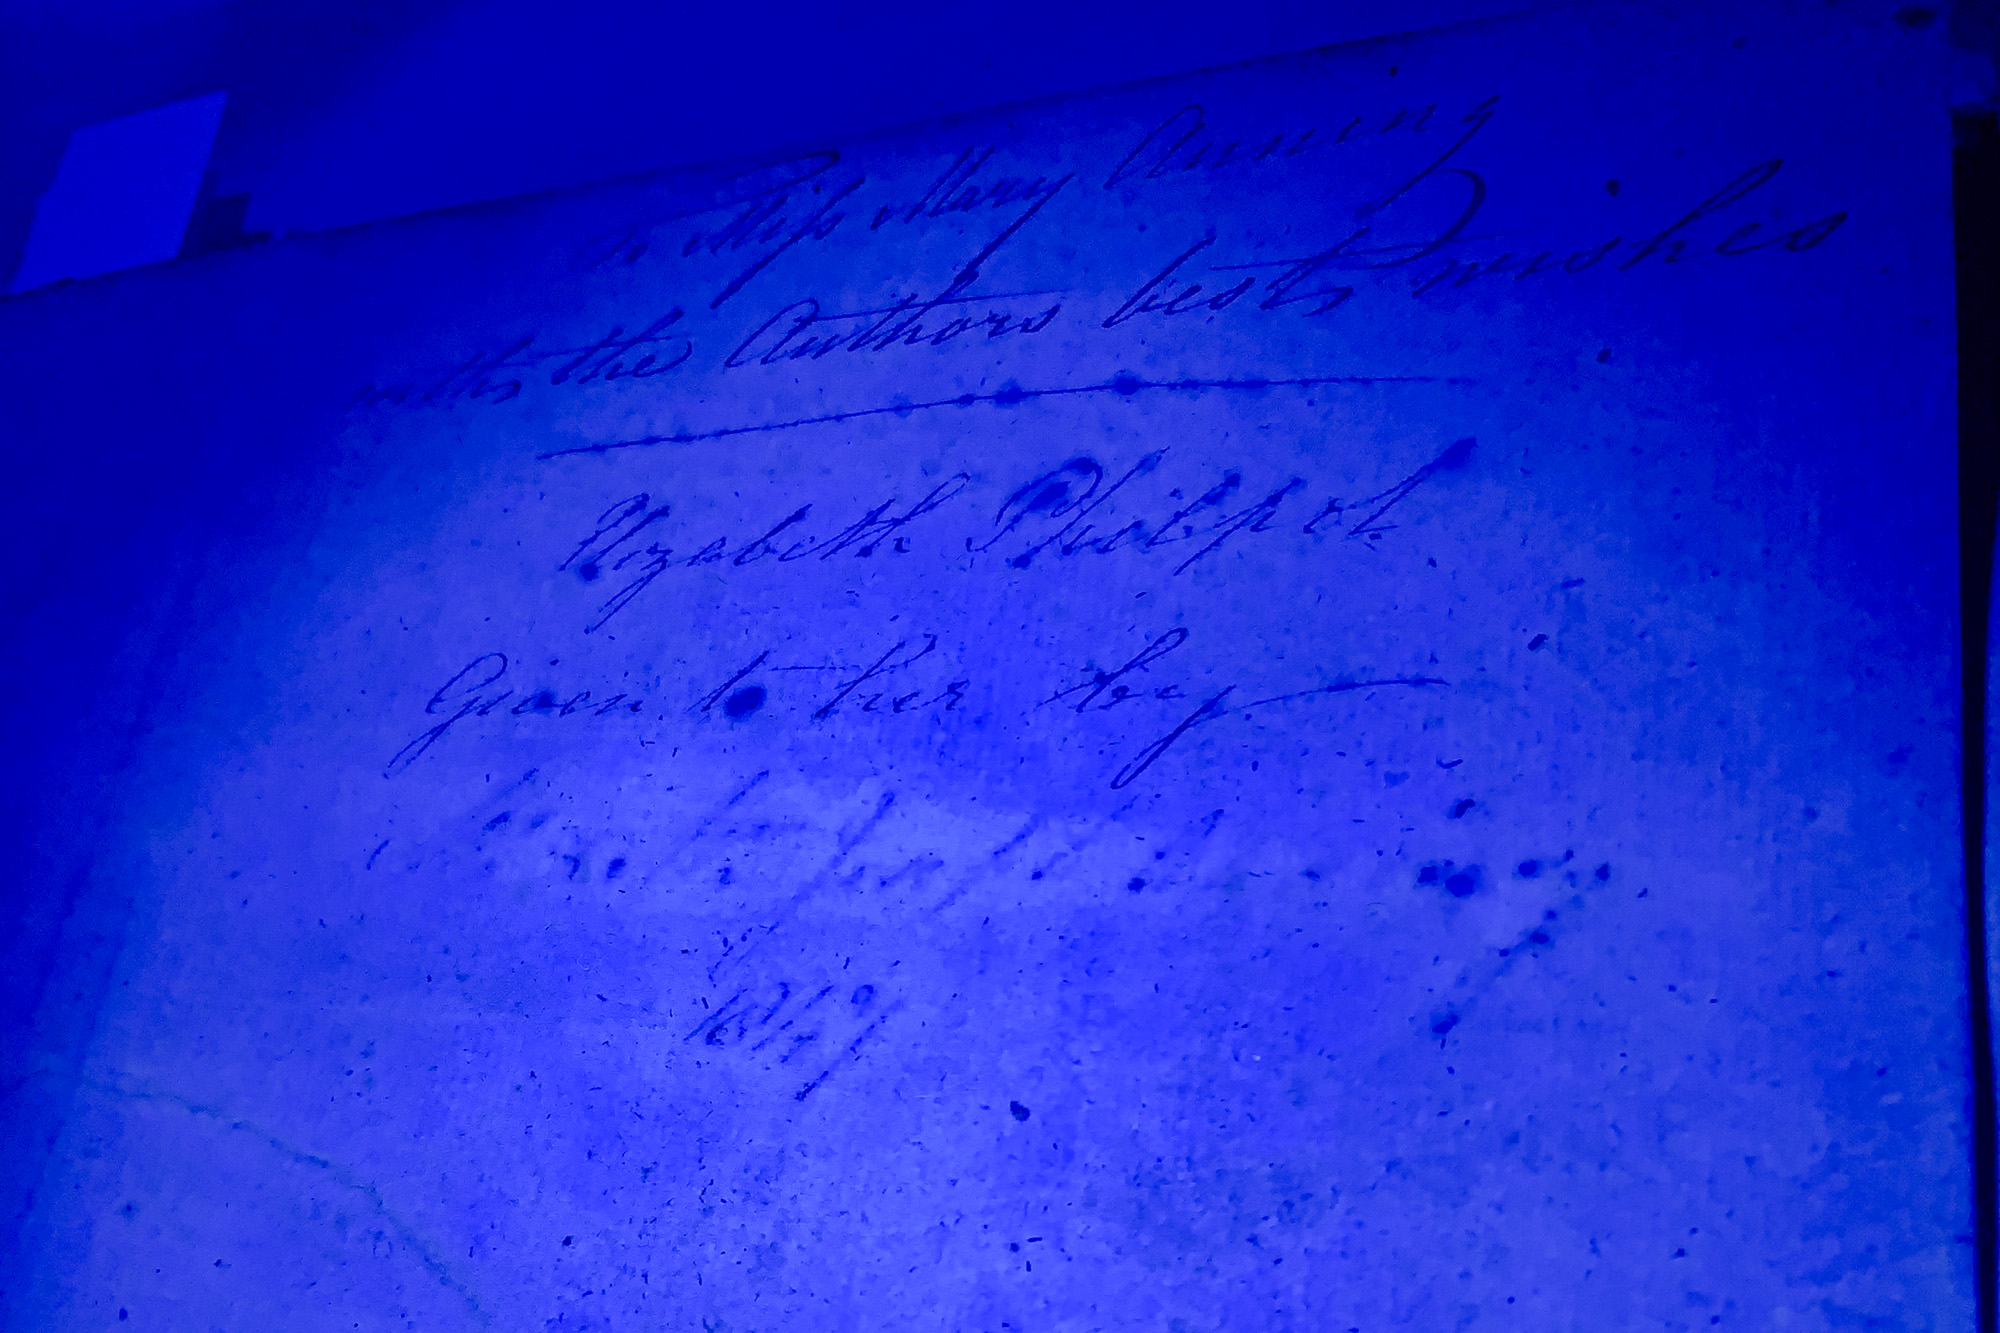 to Miss Mary Anning
with the Authors best wishes
Elizabeth Philpot
Given to her by